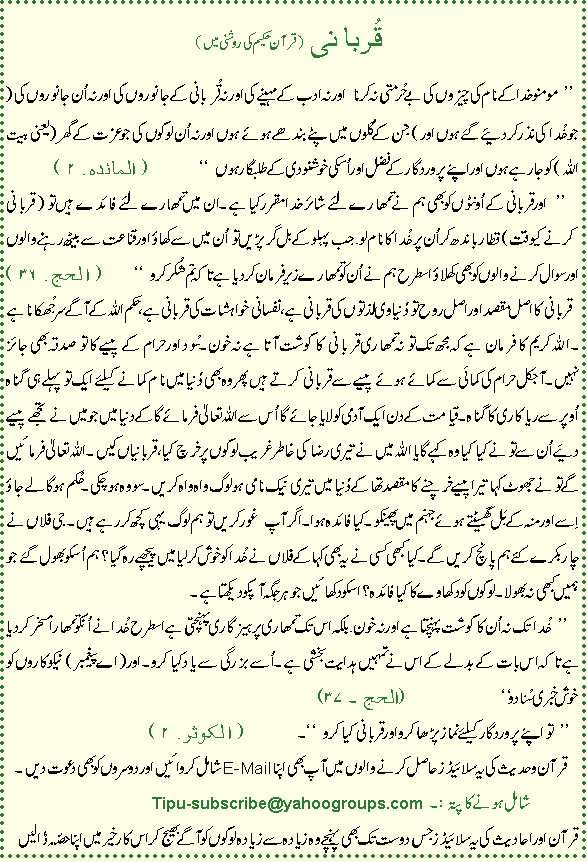 قُربانی (قرآن حکیم کی روشنی میں)
’’ مومنو خدا کے نام کی چیزوں کی بے حُرمتی نہ کرنا اور نہ ادب کے مہینے کی اور نہ قُربانی کے جانوروں کی اور نہ اُن جانوروں کی (
جو خُدا کی نذر کر دیئے گئے ہوں اور) جن کے گلوں میں پٹے بندھے ہوئے ہوں اور نہ اُن لوگوں کی جو عزت کے گھر (یعنی بیت
اللہ) کو جا رہے ہوں اور اپنے پروردگار کے فضل اور اُسکی خوشنودی کے طلبگار ہوں ‘‘ (المائدہ۔ ۲)
’’ اور قربانی کے اُونٹوں کو بھی ہم نے تمھارے لئے شعائر خدا مقرر کیا ہے۔ ان میں تمھارے لئے فائدے ہیں تو (قربانی
کرنے کیوقت) قطار باندھ کر اُن پر خُدا کا نام لو۔ جب پہلو کے بل گر پڑیں تو اُن میں سے کھاؤ اور قناعت سے بیٹھ رہنے والوں
اور سوال کرنے والوں کو بھی کھلاؤ اسطرح ہم نے اُن کو تمھارے زیرِ فرمان کر دیا ہے تاکہ تم شُکر کرو ‘‘ (الحج۔ ۳۶)
قربانی کا اصل مقصد اور اصل روح تو دُنیاوی لذتوں کی قربانی ہے، نفسانی خواہشات کی قربانی ہے، حکم اللہ کے آگے سر جُھکانا ہے
۔ اللہ کریم کا فرمان ہے کہ مجھ تک تو نہ تمھاری قربانی کا گوشت آتا ہے نہ خون۔ سُود اور حرام کے پیسے کا تو صدقہ بھی جائز
نہیں۔ آجکل حرام کی کمائی سے کمائے ہوئے پیسے سے قربانی کرتے ہیں پھر وہ بھی دُنیا میں نام کمانے کیلئے ایک تو پہلے ہی گناہ
اُوپر سے ریاکاری کا گناہ۔ قیامت کے دن ایک آدمی کو لایا جائے گا اُس سے اللہ تعالیٰ فرمائے گا کے دنیا میں جو میں نے تجھے پیسے
دیئے اُن سے تو نے کیا کیا وہ کہے گا یا اللہ میں نے تیری رضا کی خاطر غریب لوگوں پر خرچ کیا، قربانیاں کیں۔ اللہ تعالیٰ فرمائیں
گے تو نے جھوٹ کہا تیرا پیسے خرچنے کا مقصد تھا کے دُنیا میں تیری نیک نامی ہو لوگ واہ واہ کریں۔ سو وہ ہو چکی۔ حُکم ہو گا لے جاؤ
اِسے اور منہ کے بَل گھسیٹتے ہوئے جہنم میں پھینکو۔ کیا فائدہ ہوا۔ اگر آپ غور کریں تو ہم لوگ یہی کچھ کر رہے ہیں۔ جی فلاں نے
چار بکرے کئے ہم پانچ کریں گے۔ کیا کبھی کسی نے یہ بھی کہا کے فلاں نے خُدا کو خوش کر لیا میں پیچھے رہ گیا؟ ہم اُسکو بھول گئے جو
ہمیں کبھی نہ بھولا۔ لوگوں کو دکھاوے کا کیا فائدہ؟ اسکو دکھائیں جو ہر جگہ آپکو دیکھتا ہے۔
’’ خُدا تک نہ اُن کا گوشت پہنچتا ہے اور نہ خون۔ بلکہ اس تک تمھاری پرہیزگاری پہنچتی ہے اسطرح خُدا نے اُنکو تمھارا مسخر کر دیا
ہے تاکہ اس بات کے بدلے کے اس نے تمہیں ہدایت بخشی ہے۔ اُسے بزرگی سے یاد کیا کرو۔ اور (اے پیغمبر) نیکوکاروں کو
خوش خبری سُنا دو‘‘ (الحج ۔ ۳۷)
’’ تو اپنے پروردگار کیلئے نماز پڑھا کرو اور قربانی کیا کرو ‘‘۔ (الکوثر۔ ۲)
قرآن و حدیث کی یہ سلائیڈز حاصل کرنے والوں میں آپ بھی اپنا E-Mail شامل کروائیں اور دوسروں کو بھی دعوت دیں۔
شامل ہونے کا پتہ :۔ Tipu-subscribe@yahoogroups.com
قرآن اور احادیث کی یہ سلائیڈز جس دوست تک بھی پہنچے وہ زیادہ سے زیادہ لوگوں کو آگے بھیج کر اس کارِ خیر میں اپنا حصّہ ڈالیں